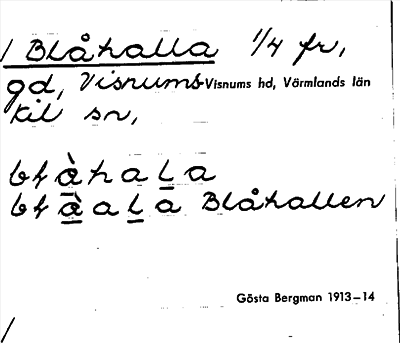 / Blåhalla 1/4 fr,
gd, Visnums- Visnums hd, Värmlands län
kil sn,
błàhaḻa
błà̱aḻa Blåhallen
Gösta Bergman 1913–14
/